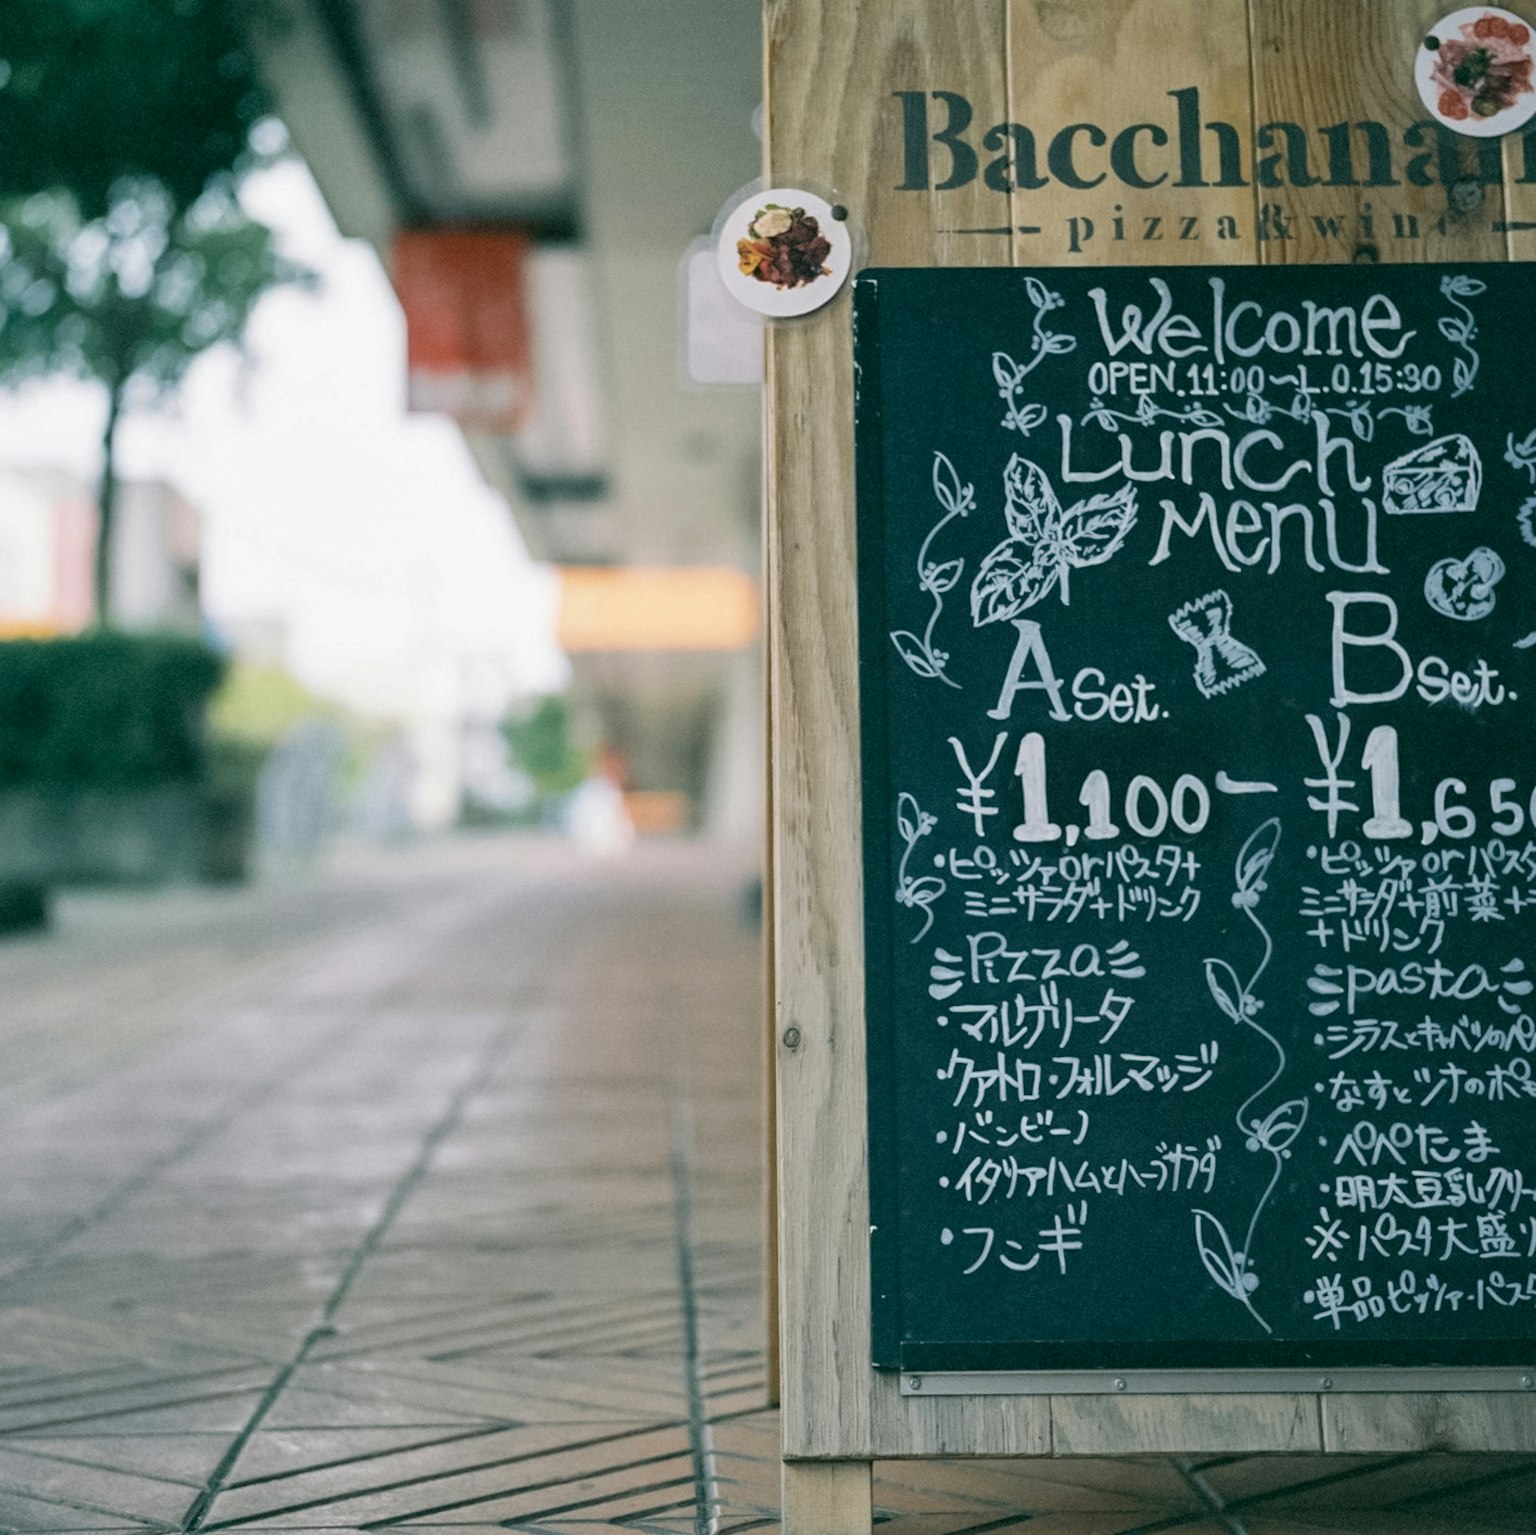 Bacchana
pizza & wine
Welcome
OPEN.11:00~L.O.15:30
Lunch
Menu
A Set.
¥1,100-
・ピッツァorパスタ+
ミニサラダ+ドリンク
Pizza
・マルゲリータ
・クァトロ・フォルマッジ
・バンビーノ
・イタリアハムとハーブサラダ
・フンギ
B Set.
¥1,650
・ピッツァorパスタ
ミニサラダ+前菜+
+ドリンク
pasta
・シラスとキャベツのペ
・なすとツナのポモ
・ペペたま
・明太豆乳クリー
※パスタ大盛り
・単品ピッツァ・パスタ